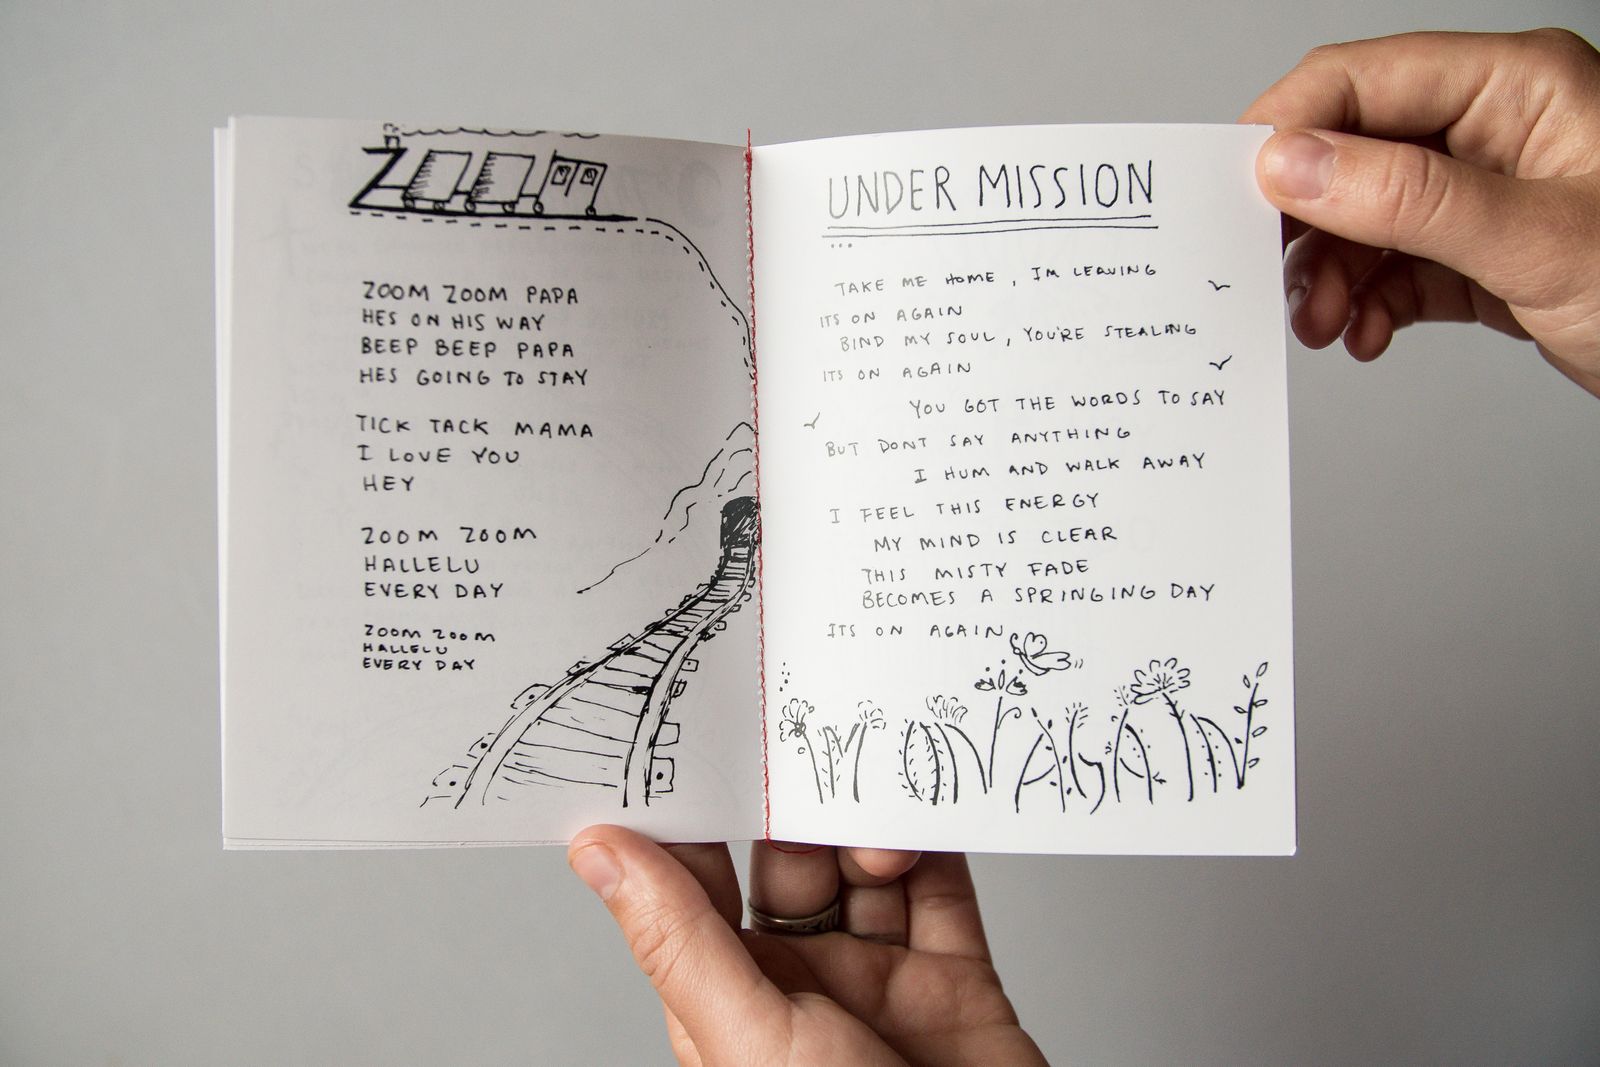 ZOOM ZOOM PAPA
HES ON HIS WAY
BEEP BEEP PAPA
HES GOING TO STAY
TICK TACK MAMA
I LOVE YOU
HEY
ZOOM ZOOM
HALLELU
EVERY DAY
ZOOM ZOOM
HALLELU
EVERY DAY
UNDER MISSION
...
TAKE ME HOME, IM LEAVING
ITS ON AGAIN
BIND MY SOUL, YOU'RE STEALING
ITS ON AGAIN
YOU GOT THE WORDS TO SAY
BUT DONT SAY ANYTHING
I HUM AND WALK AWAY
I FEEL THIS ENERGY
MY MIND IS CLEAR
THIS MISTY FADE
BECOMES A SPRINGING DAY
ITS ON AGAIN